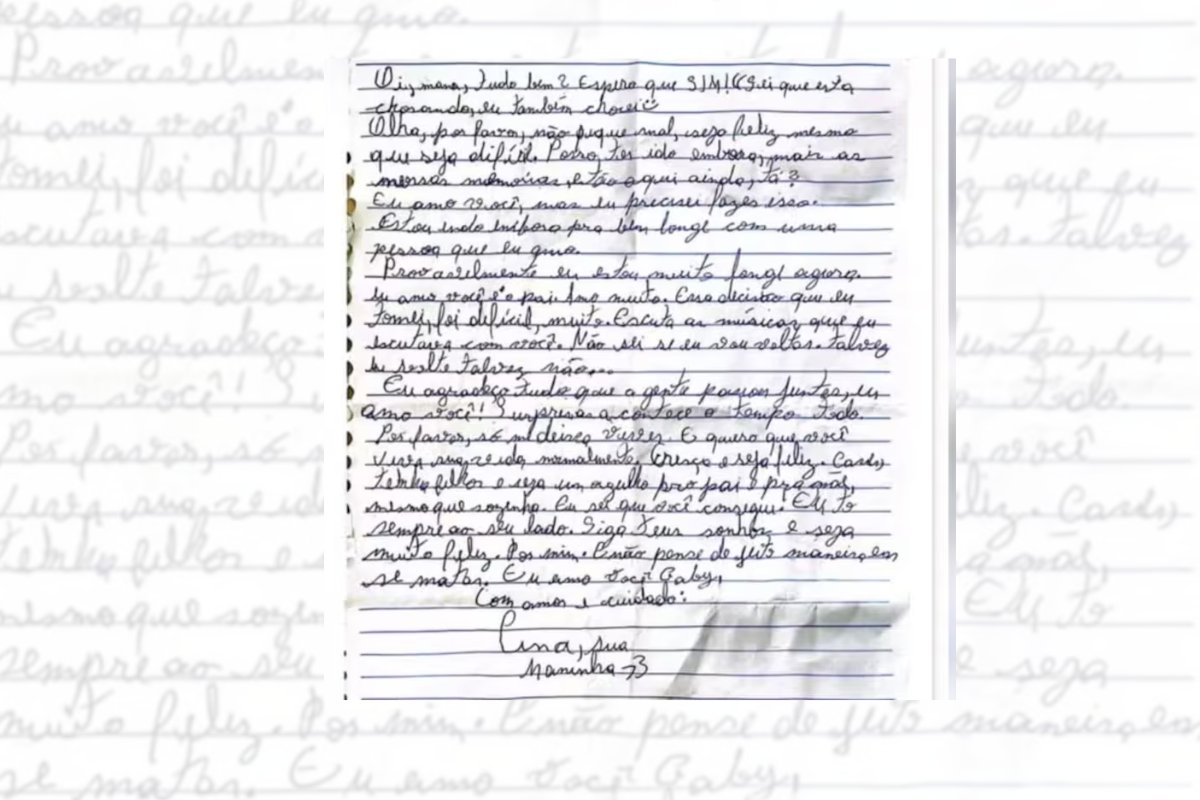 Oi, mana, tudo bem? Espero que SIM! Sei que esta
chorando, eu também chorei
Olha, por favor, não fique mal, seja feliz mesmo
que seja difícil. Posso, ter ido embora, mais as
nossas memórias, estão aqui ainda, tá?
Eu amo você, mas eu precisei fazer isso.
Estou indo embora pra bem longe com uma
pessoa que eu amo.
Provavelmente eu estou muito longe agora.
Eu amo você e o pai. Amo muito. Essa decisão que eu
tomei, foi difícil, muito. Escuta as músicas que eu
escutava com você. Não sei se eu vou voltar. Talvez
eu volte talvez não...
Eu agradeço tudo que a gente passou juntas, eu
amo você! Surpresa acontece o tempo todo.
Por favor, só me deixa viver. E quero que você
viva sua vida normalmente. Cresça e seja feliz. Case,
tenha filhos e seja um orgulho pro pai e pra mãe,
mesmo que sozinha. Eu sei que você consegue. Eu to
sempre ao seu lado. Siga teus sonhos e seja
muito feliz. Por mim. E não pense de jeito maneira, em
se matar. Eu amo você Gaby,
Com amor e cuidado:
sua
Maninha <3